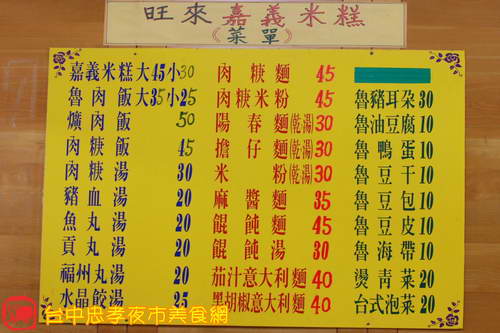 旺來嘉義米糕
《菜單》
嘉義米糕大45小30
魯肉飯大35小25
爌肉飯 50
肉焿飯 45
肉焿湯 30
豬血湯 20
魚丸湯 20
貢丸湯 20
福州丸湯 20
水晶餃湯 25
肉焿麵 45
肉焿米粉 45
陽春麵(乾湯)30
擔仔麵(乾湯)30
米粉(乾湯)30
麻醬麵 35
餛飩麵 45
餛飩湯 30
茄汁意大利麵 40
黑胡椒意大利麵 40
魯豬耳朵 30
魯油豆腐 10
魯鴨蛋 10
魯豆干 10
魯豆包 10
魯豆皮 10
魯海帶 10
燙青菜 20
台式泡菜 20
台中忠孝夜市美食網